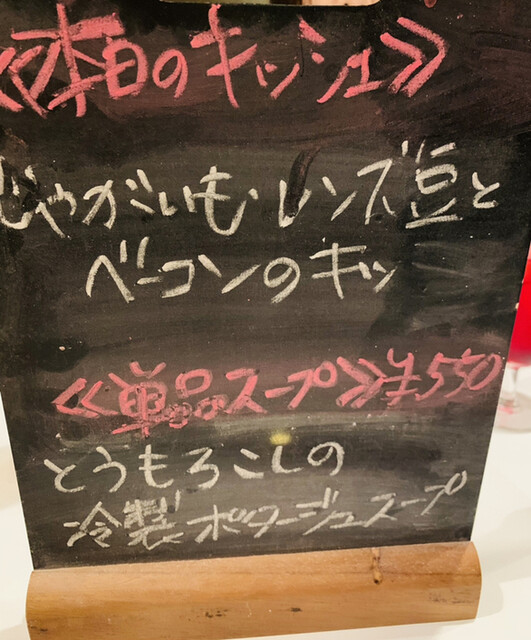 ≪本日のキッシュ≫
じゃがいも レンズ豆と
ベーコンのキッ
≪単品のスープ≫¥550
とうもろこしの
冷製ポタージュスープ